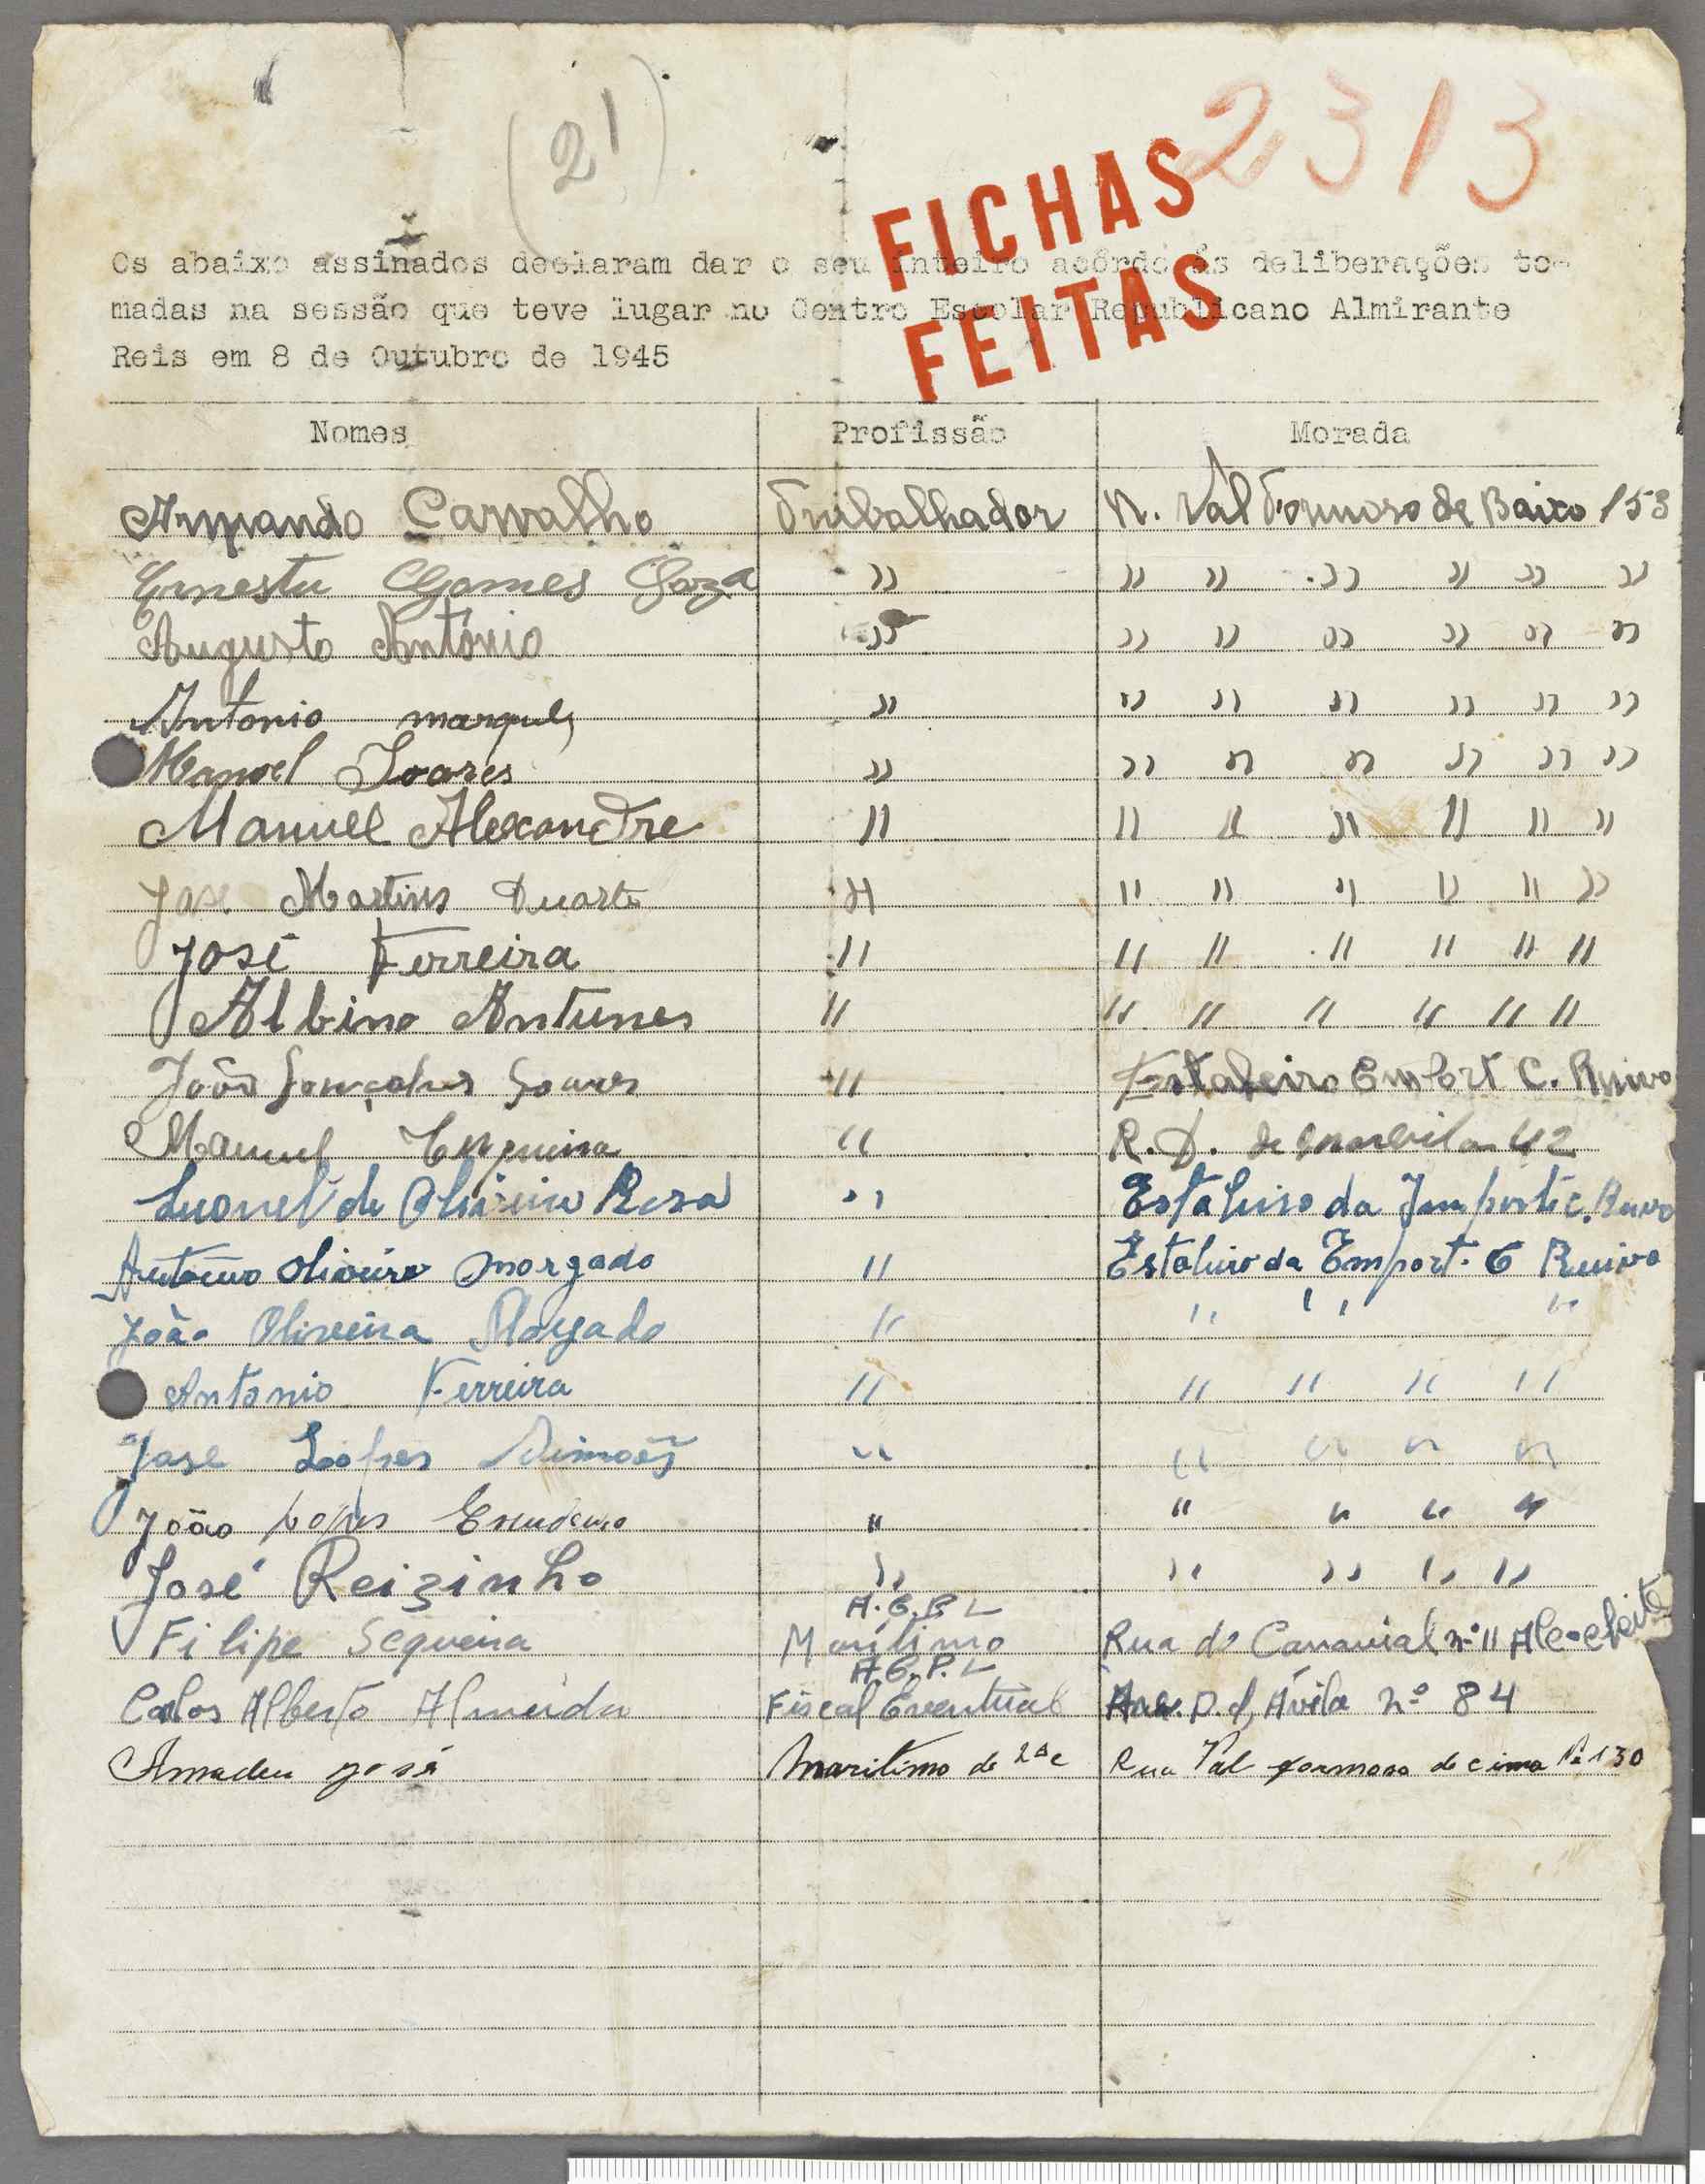 (21)
2313
FICHAS
FEITAS
Os abaixo assinados declaram dar o seu inteiro acôrdo ás deliberações to-
madas na sessão que teve lugar no Centro Escolar Republicano Almirante
Reis em 8 de Outubro de 1945
Nomes Profissão Morada
Armando Carvalho Trabalhador R. Val Formoso de Baixo 153
Ernesto Gomes " " " " " " "
Augusto António " " " " " " "
Antonio marques " " " " " " "
Manoel Soares " " " " " " "
Manuel Alexandre " " " " " " "
Jose Martins Duarte " " " " " " "
José Ferreira " " " " " " "
Albino Antunes " " " " " " "
João Gonçalves Soares " Estaleiro C. Ruivo
Manuel " R. D. de 42
Leonel de Oliveira Rosa " da C. Ruivo
António Oliveira Morgado " da Emport. C Ruivo
João Oliveira Morgado " " " "
Antonio Ferreira " " " " "
Jose Lopes Simões " " " " "
João Lopes " " " " "
José Reizinho " " " " "
A.G.P.L
Filipe Sequeira Marítimo Rua do Canavial nº 11
A.G.P.L
Carlos Alberto Almeida Fiscal Eventual Ávila nº 84
Amadeu José Maritimo de 2ª c Rua Val formoso de cima Nº 130